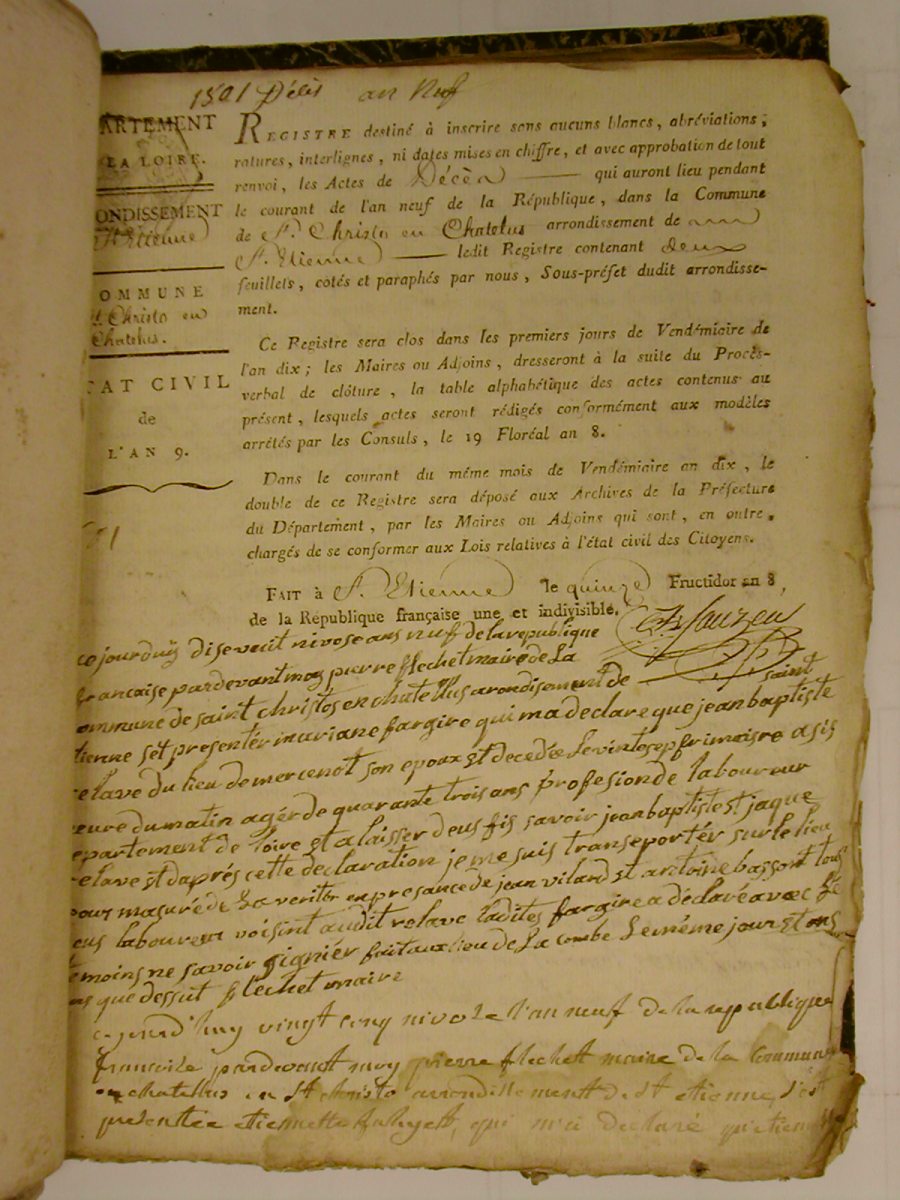 1501 Décès an Neuf
ARTEMENT
LA LOIRE.
ONDISSEMENT
St Etienne
OMMUNE
St Christo en
Chatelus.
TAT CIVIL
de
L'AN 9.
REGISTRE destiné à inscrire sans aucuns blancs, abréviations,
ratures, interlignes, ni dates mises en chiffre, et avec approbation de tout
renvoi, les Actes de Décès qui auront lieu pendant
le courant de l'an neuf de la République, dans la Commune
de St. Christo en Chatelus arrondissement de
St. Etienne ledit Registre contenant deux
feuillets, cotés et paraphés par nous, Sous-préfet dudit arrondisse-
ment.
Ce Registre sera clos dans les premiers jours de Vendémiaire de
l'an dix; les Maires ou Adjoins, dresseront à la suite du Procès-
verbal de clôture, la table alphabétique des actes contenus au
présent, lesquels actes seront rédigés conformément aux modèles
arrêtés par les Consuls, le 19 Floréal an 8.
Dans le courant du même mois de Vendémiaire an dix, le
double de ce Registre sera déposé aux Archives de la Préfecture
du Département, par les Maires ou Adjoins qui sont, en outre,
chargés de se conformer aux Lois relatives à l'état civil des Citoyens.
FAIT à St. Etienne le quinze Fructidor an 8,
de la République française une et indivisible.
ce jourduÿ diseveut nivose ans neuf de la republique
francaise pardevant moy pierre flechet maire de La
ommune de saint christos en chatellus arondisement de saint
tienne set presentér mariane fargire qui ma declare que jean baptiste
relave du lieu de mercenot son epoux et decedée Le vintesep frimaire a sis
eure du matin agér de quarante trois ans profesion de laboureur
epartement de loire et a laisser deus fis savoir jean baptiste et jaque
relave et daprés cette declaration je me suis transeportér sur le lieu
pour masuré de La verité en presance de jean vilard et antoine bassont tous
eus laboureur voisint audit relave laditte fargire a déclaré avec Lé
émoins ne savoir signiér fait au lieu de La combe Le méme jour et ans
ns que dessut flechet maire
cejourd'huy vingt cinq nivose l'an neuf de la republique
francoise pardevant moy pierre flechet maire de la Commune
en chatellus en st christo arrondissement de st etienne, s'est
presentée etiennette qui m'a declaré